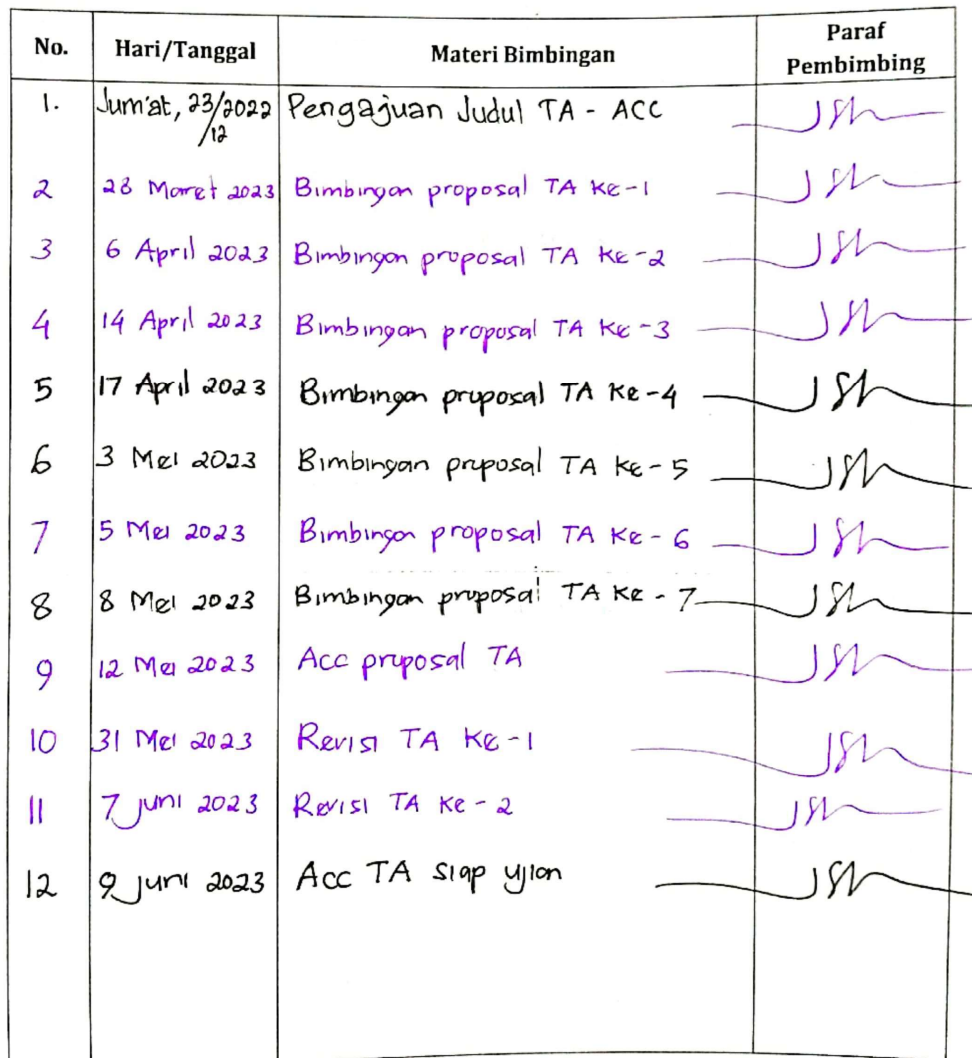 No. Hari/Tanggal Materi Bimbingan Paraf Pembimbing
1. Jum'at, 23/12/2022 Pengajuan Judul TA - ACC
2 28 Maret 2023 Bimbingan proposal TA Ke-1
3 6 April 2023 Bimbingan proposal TA Ke-2
4 14 April 2023 Bimbingan proposal TA Ke-3
5 17 April 2023 Bimbingan proposal TA Ke-4
6 3 Mei 2023 Bimbingan proposal TA Ke-5
7 5 Mei 2023 Bimbingan proposal TA Ke-6
8 8 Mei 2023 Bimbingan proposal TA Ke-7
9 12 Mei 2023 Acc proposal TA
10 31 Mei 2023 Revisi TA Ke-1
11 7 Juni 2023 Revisi TA Ke-2
12 9 Juni 2023 Acc TA siap ujian